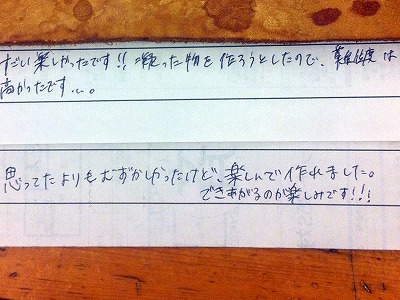 だい楽しかったです!! 凝った物を作ろうとしたので、難易度は
高かったです…。
思ってたよりもむずかしかったけど、楽しんで作れました。
できあがるのが楽しみです!!!